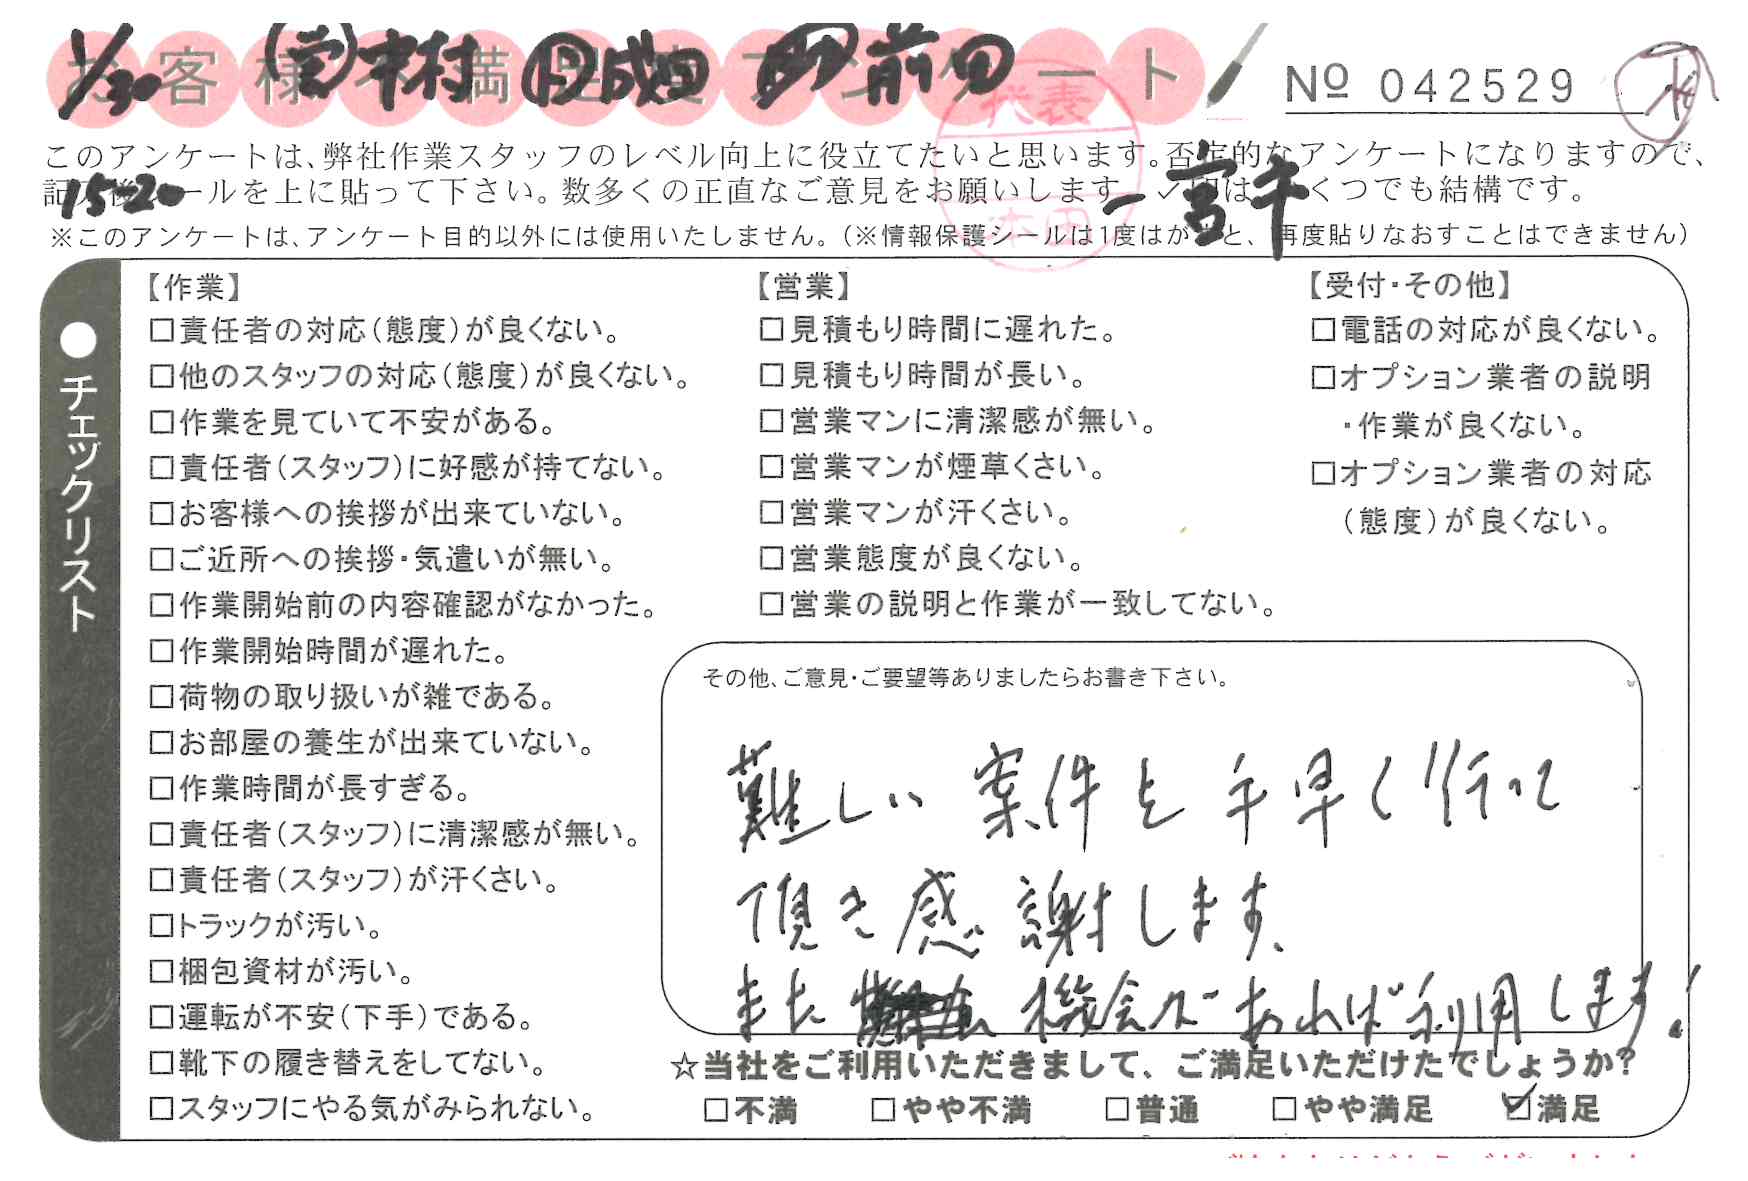 お客様不満足度アンケート
1/30 (営)中村 成田 前田
№ 042529
代表
本田
このアンケートは、弊社作業スタッフのレベル向上に役立てたいと思います。否定的なアンケートになりますので、
15-20
記入後シールを上に貼って下さい。数多くの正直なご意見をお願いします。✓印はいくつでも結構です。
一宮牛
※このアンケートは、アンケート目的以外には使用いたしません。(※情報保護シールは1度はがすと、再度貼りなおすことはできません)
●チェックリスト
【作業】
□責任者の対応(態度)が良くない。
□他のスタッフの対応(態度)が良くない。
□作業を見ていて不安がある。
□責任者(スタッフ)に好感が持てない。
□お客様への挨拶が出来ていない。
□ご近所への挨拶・気遣いが無い。
□作業開始前の内容確認がなかった。
□作業開始時間が遅れた。
□荷物の取り扱いが雑である。
□お部屋の養生が出来ていない。
□作業時間が長すぎる。
□責任者(スタッフ)に清潔感が無い。
□責任者(スタッフ)が汗くさい。
□トラックが汚い。
□梱包資材が汚い。
□運転が不安(下手)である。
□靴下の履き替えをしてない。
□スタッフにやる気がみられない。
【営業】
□見積もり時間に遅れた。
□見積もり時間が長い。
□営業マンに清潔感が無い。
□営業マンが煙草くさい。
□営業マンが汗くさい。
□営業態度が良くない。
□営業の説明と作業が一致してない。
【受付・その他】
□電話の対応が良くない。
□オプション業者の説明
・作業が良くない。
□オプション業者の対応
(態度)が良くない。
その他、ご意見・ご要望等ありましたらお書き下さい。
難しい案件を手早く行って
頂き感謝します、
また機会があれば利用します!
☆当社をご利用いただきまして、ご満足いただけたでしょうか?
□不満 □やや不満 □普通 □やや満足 ☑満足